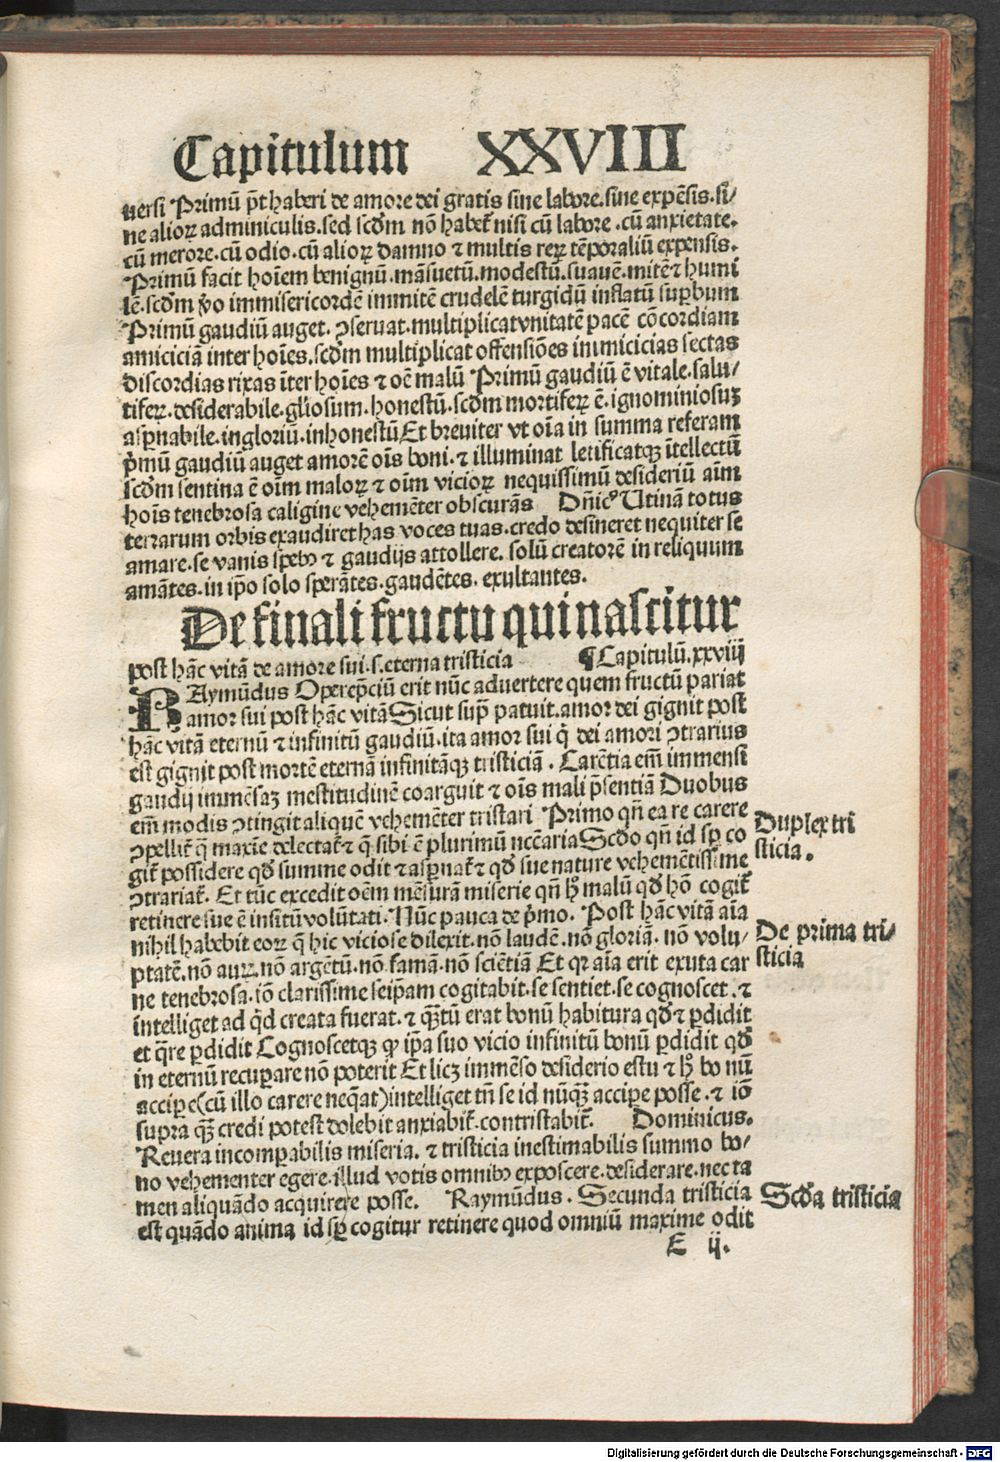 Capitulum XXVIII
uersi Primū p̄t haberi de amore dei gratis sine labore. sine expēsis. si/
ne alioꝝ adminiculis. sed scd̄m nō habet̄ nisi cū labore . cū anxietate.
cū merore. cū odio. cū alioꝝ damno ⁊ multis reꝝ tēporaliū expensis.
Primū facit hoīem benignū. māsuetū. modestū. suauē. mitē ⁊ humi
lē. scd̄m v̄o immisericordē immitē crudelē turgidū inflatū suꝑbum
Primū gaudiū auget. ꝯseruat. multiplicat vnitatē pacē cōcordiam
amiciciā inter hoīes. scd̄m multiplicat offensiōes inimicicias sectas
discordias rixas īter hoīes ⁊ oē malū Primū gaudiū ē vitale. salu/
tifeꝝ. desiderabile. gl̄iosum. honestū. scd̄m mortifeꝝ ē. ignominiosuꝫ
asꝑnabile. ingloriū. inhonestū Et breuiter vt oīa in summa referam
p̄mū gaudiū auget amorē oīs boni. ⁊ illuminat letificatqꝫ ītellectū
scd̄m sentina ē oīm maloꝝ ⁊ oīm vicioꝝ nequissimū desideriū aīm
hoīs tenebrosa caligine vehemēter obscurās Dn̄icꝰ Utinā totus
terrarum orbis exaudiret has voces tuas. credo desineret nequiter se
amare. se vanis speb⁹ ⁊ gaudijs attollere. solū creatorē in reliquum
amātes. in ip̄o solo sperātes. gaudētes. exultantes.
De finali fructu qui nascitur
post hāc vitā de amore sui. s. eterna tristicia ¶ Capitulū. xxviij
RAymūdus Operep̄ciū erit nūc aduertere quem fructū pariat
amor sui post hāc vitā Sicut sup̄ patuit. amor dei gignit post
hāc vitā eternū ⁊ infinitū gaudiū. ita amor sui q̄ dei amori ꝯtrarius
est gignit post mortē eternā infinitāqꝫ tristiciā . Carētia em̄ immensi
gaudij immēsaꝫ mestitudinē coarguit ⁊ oīs mali p̄sentiā Duobus
em̄ modis ꝯtingit aliquē vehemēter tristari Primo qn̄ ea re carere
ꝯpellit̄ q̄ maxīe delectat̄ ⁊ q̄ sibi ē plurimū nc̄cāria Scd̄o qn̄ id sꝑ co
git̄ possidere qd̄ summe odit ⁊ asꝑnat̄ ⁊ qd̄ sue nature vehemētissime
ꝯtrariat̄. Et tūc excedit oēm mēsurā miserie qn̄ hꝰ malū qd̄ hō cogit̄
retinere sue ē insitū volūtati. Nūc pauca de p̄mo. Post hāc vitā aīa
nihil habebit eoꝝ q̄ hic viciose dilexit. nō laudē. nō gloriā. nō volu/
ptatē. nō auꝝ. nō argētū. nō famā. nō sciētiā Et qꝛ aīa erit exuta car
ne tenebrosa. iō clarissime seip̄am cogitabit. se sentiet. se cognoscet. ⁊
intelliget ad q̄d creata fuerat. ⁊ qꝫtū erat bonū habitura qd̄ ⁊ ꝑdidit
et q̄re ꝑdidit Cognoscetqꝫ ꝙ ip̄a suo vicio infinitū bonū ꝑdidit qd̄
in eternū recuꝑare nō poterit Et licꝫ immēso desiderio estu ⁊ hꝰ bo nū
acciꝑe (cū illo carere neq̄at) intelliget tn̄ se id nūqꝫ acciꝑe posse. ⁊ iō
supra qꝫ credi potest dolebit anxiabit̄. contristabit̄. Dominicus.
Reuera incomꝑabilis miseria. ⁊ tristicia inestimabilis summo bo/
no vehementer egere. illud votis omnib⁹ exposcere. desiderare. nec ta
men aliquādo acquirere posse. Raymūdus. Secunda tristicia
est quādo anima id sꝑ cogitur retinere quod omniū maxime odit
E ij.
Duplex tri
sticia.
De prima tri/
sticia
Scd̄a tristicia
Digitalisierung gefördert durch die Deutsche Forschungsgemeinschaft - DFG